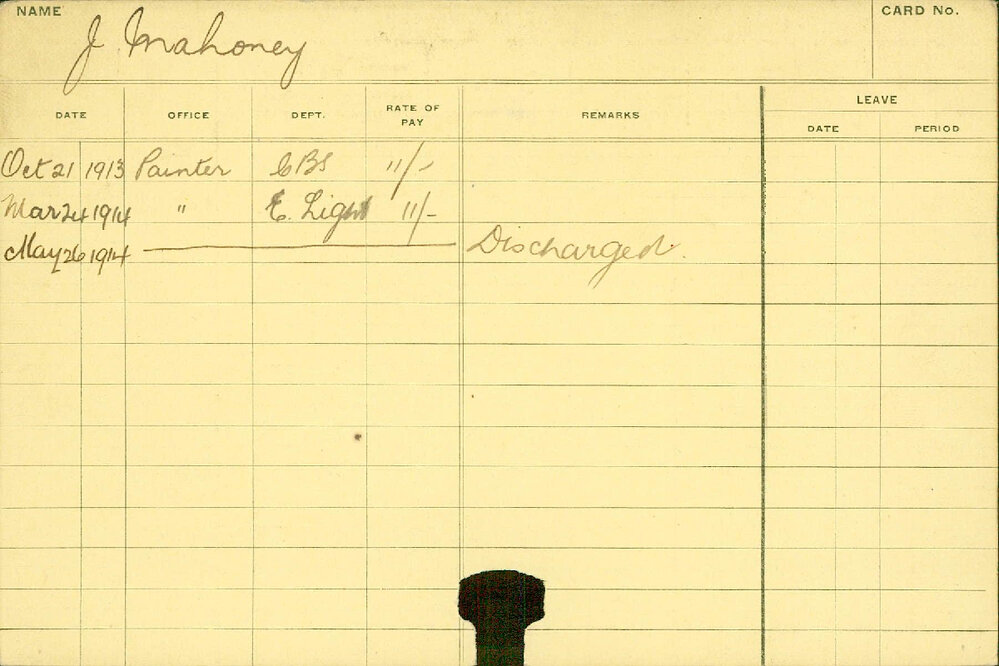 NAME J. Mahoney CARD No.
DATE OFFICE DEPT. RATE OF PAY REMARKS LEAVE
DATE PERIOD
Oct 21 1913 Painter CBS 11/-
Mar 24 1914 " E. Light 11/-
May 26 1914 Discharged.